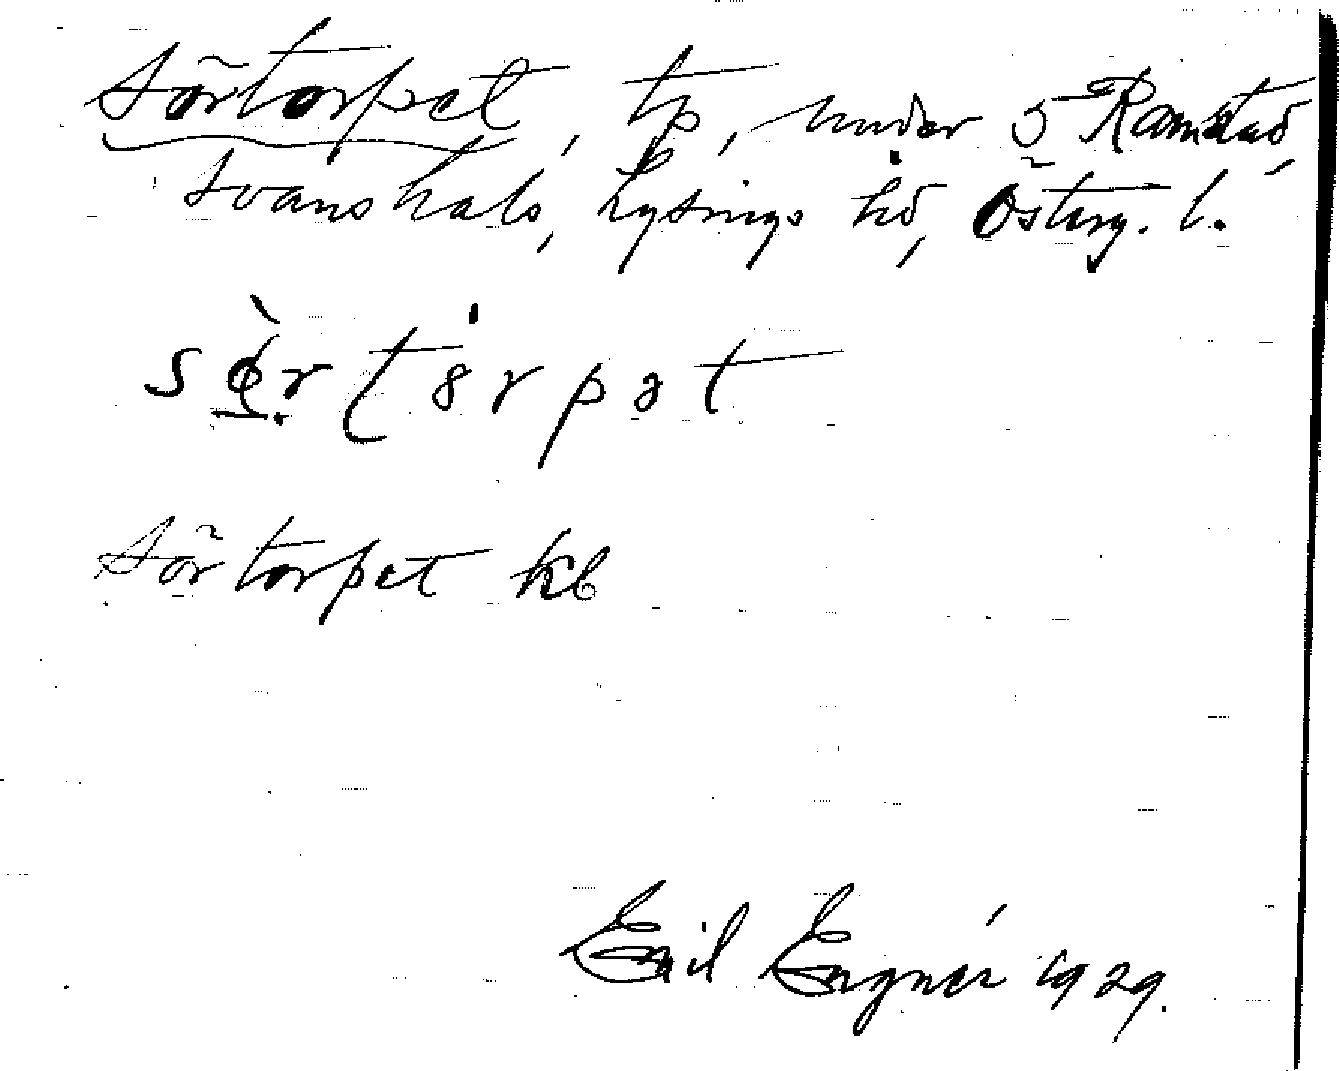 Sörtorpet, tp, under 5 Ramstad,
Svanshals, Lysings hd, Österg. l.
Sörtorpet kb
Emil Engnér 1929.